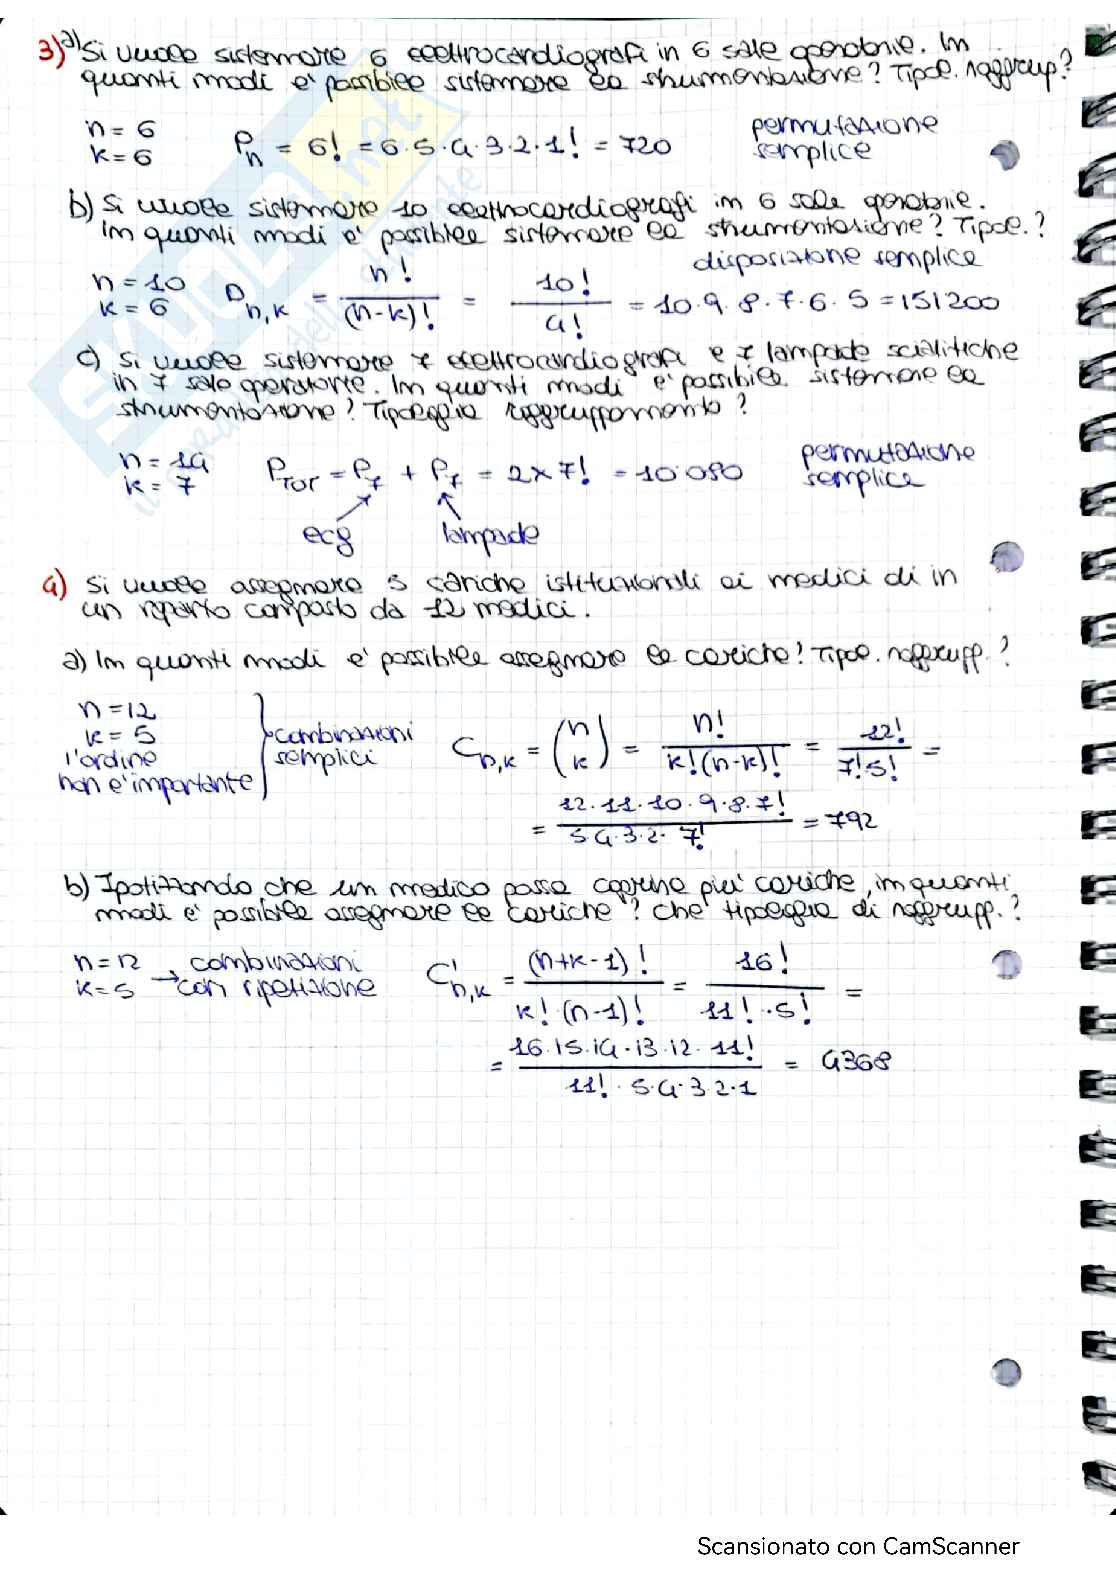 3) a) Si vuole sistemare 6 elettrocardiografi in 6 sale operatorie. In
quanti modi è possibile sistemare la strumentazione? Tipol. raggrup?
n = 6
k = 6
Pn = 6! = 6·5·4·3·2·1! = 720
permutazione
semplice
b) Si vuole sistemare 10 elettrocardiografi in 6 sale operatorie.
In quanti modi è possibile sistemare la strumentazione? Tipol.?
disposizione semplice
n = 10
k = 6
Dn,k = n! / (n-k)! = 10! / 4! = 10·9·8·7·6·5 = 151200
c) Si vuole sistemare 7 elettrocardiografi e 7 lampade scialitiche
in 7 sale operatorie. In quanti modi è possibile sistemare la
strumentazione? Tipologia raggruppamento?
n = 14
k = 7
PTOT = P7 + P7 = 2x7! = 10'080
permutazione
semplice
ecg
lampade
4) Si vuole assegnare 5 cariche istituzionali ai medici di in
un reparto composto da 12 medici.
a) In quanti modi è possibile assegnare le cariche? Tipol. raggrupp.?
n = 12
k = 5
l'ordine
non è importante
combinazioni
semplici
Cn,k = (n k) = n! / k!(n-k)! = 12! / 7!5! =
= 12·11·10·9·8·7! / 5·4·3·2· 7! = 792
b) Ipotizzando che un medico possa coprire più cariche, in quanti
modi è possibile assegnare le cariche? Che tipologia di raggrupp.?
n = 12
k = 5
→ combinazioni
con ripetizione
C'n,k = (n+k-1)! / k!·(n-1)! = 16! / 11!·5! =
= 16·15·14·13·12·11! / 11!·5·4·3·2·1 = 4368
Scansionato con CamScanner